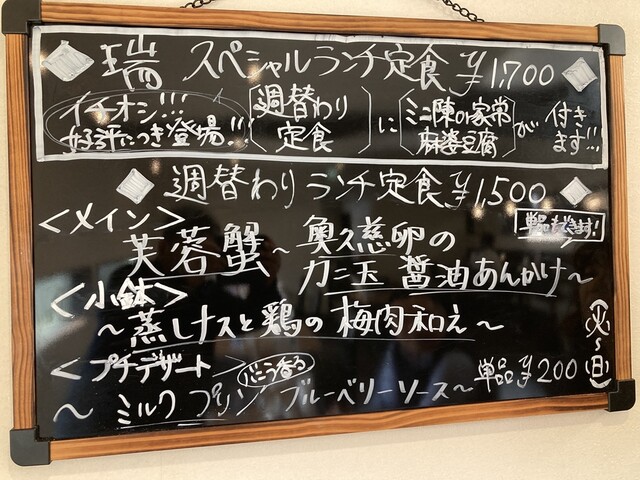 ◆ 瑞 スペシャルランチ定食 ¥1,700 ◆
イチオシ!!!
好評につき登場!!
週替わり
定食
に
ミニ陳の家常
麻婆豆腐
が
付き
ます!!!
◆ 週替わりランチ定食 ¥1,500 ◆
単品もできます!
<メイン>
芙蓉蟹~奥久慈卵の
カニ玉 醤油あんかけ~
<小鉢>
~蒸しナスと鶏の梅肉和え~
(火~日)
<プチデザート>
バニラ香る
~ミルクプリン ブルーベリーソース~ 単品¥200